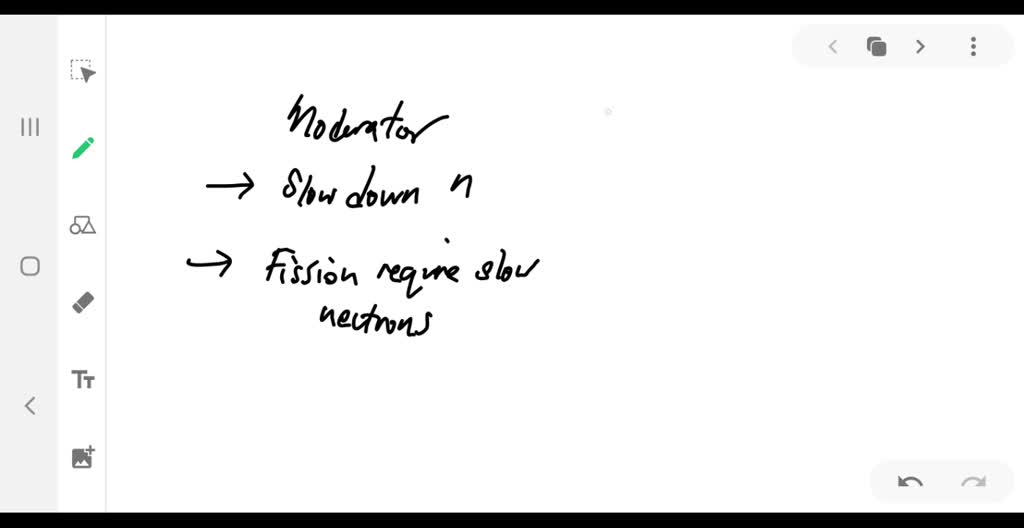 Moderator
→ Slow down n
→ Fission require slow
nectrons
TT